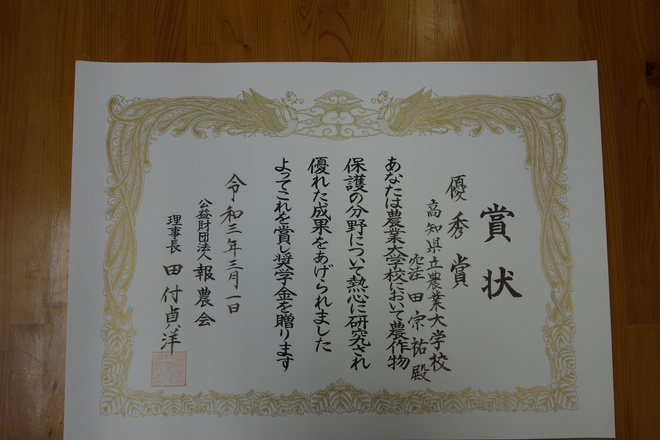 賞状
優秀賞
高知県立農業大学校
田宗祐殿
あなたは農業大学校において農作物
保護の分野について熱心に研究され
優れた成果をあげられました
よってこれを賞し奨学金を贈ります
令和三年三月一日
公益財団法人 報農会
理事長 田付貞洋